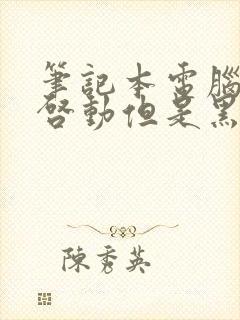 筆記本電腦
啓動但是黑
陳秀英